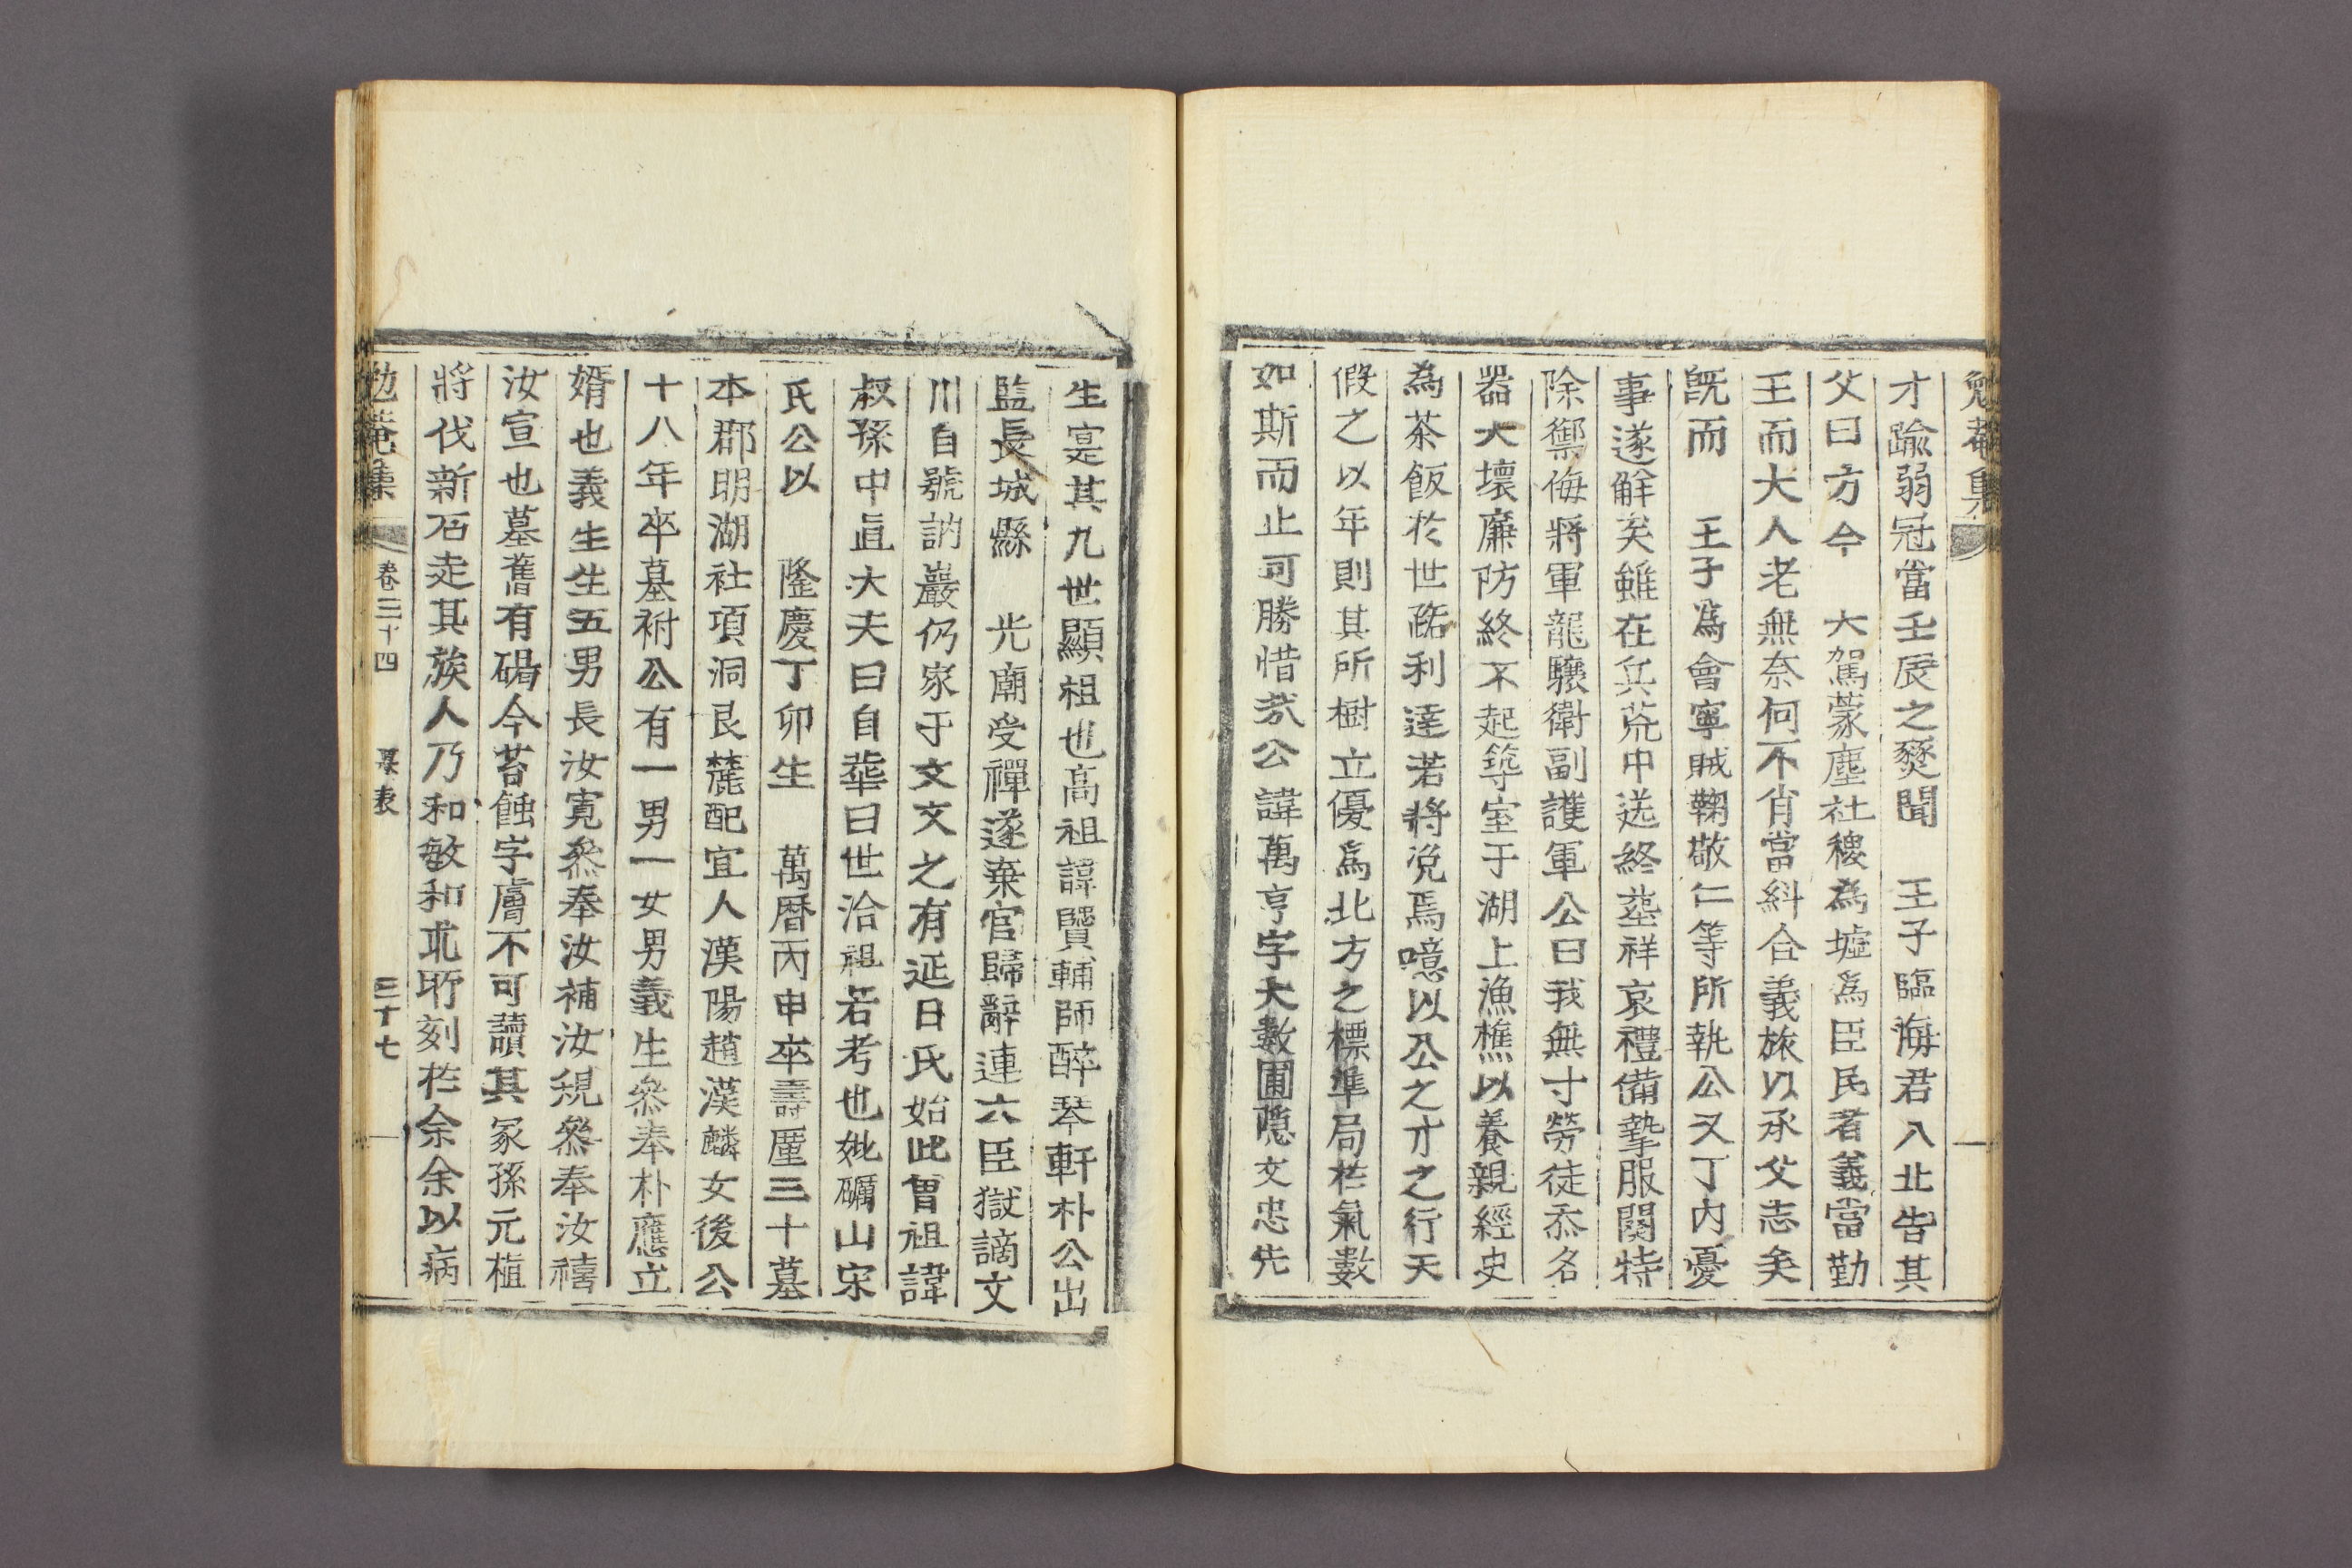 勉菴集
才踰弱冠當壬辰之燹聞 王子臨海君入北告其
父曰方今 大駕蒙塵社稷為墟為臣民者義當勤
王而大人老無奈何不肖當糾合義旅以承父志矣
旣而 王子爲會寧賊鞠敬仁等所執公又丁內憂
事遂觧矣雖在兵荒中送終塟祥哀禮備摯服闋特
除禦侮將軍龍驤衛副護軍公曰我無寸勞徒忝名
器大壞廉防終不起築室于湖上漁樵以養親經史
為茶飯於世路利達若將浼焉噫以公之才之行天
假之以年則其所樹立優爲北方之標準局於氣數
如斯而止可勝惜哉公諱萬亨字大數圃隱文忠先
生寔其九世顯祖也高祖諱贒輔師醉琴軒朴公出
監長城縣 光廟受禪遂棄官歸辭連六臣獄謫文
川自號訥巖仍家于文文之有延日氏始此曾祖諱
叔孫中直大夫曰自華曰世洽祖若考也妣礪山宋
氏公以 隆慶丁卯生 萬曆丙申卒壽厪三十墓
本郡明湖社項洞艮麓配宜人漢陽趙漢麟女後公
十八年卒墓祔公有一男一女男義生叅奉朴應立
婿也義生生五男長汝寬叅奉汝補汝規叅奉汝禧
汝宣也墓舊有碣今苔蝕字膚不可讀其冢孫元植
將伐新石走其族人乃和敏和求所刻於余余以病
勉菴集 卷三十四 墓表 三十七